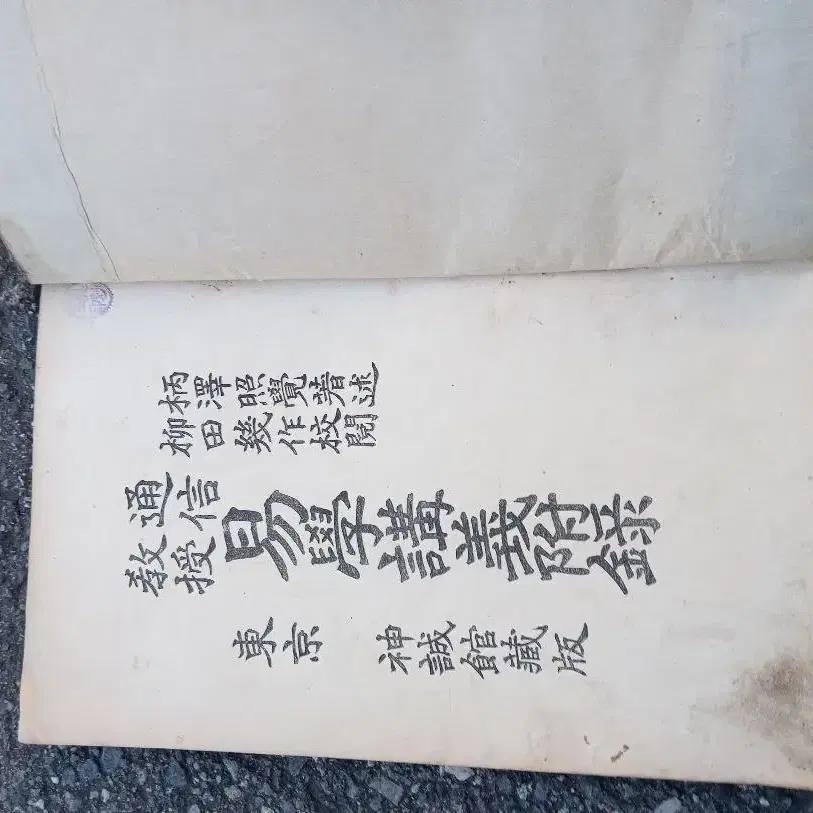 柄澤照覺著述
柳田幾作校閲
通信教授
易學講義附録
東京 神誠館藏版